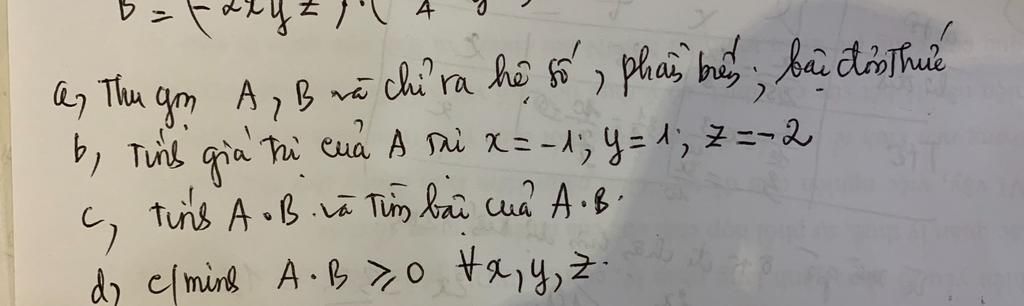 B = (-2xyz
a, Thu gọn A, B và chỉ ra hệ số, phần biến, bậc đơn thức
b, Tính giá trị của A tại x = -1; y = 1; z = -2
c, tính A.B và tìm bậc của A.B.
d, c/minh A.B ≥ 0 ∀x, y, z.